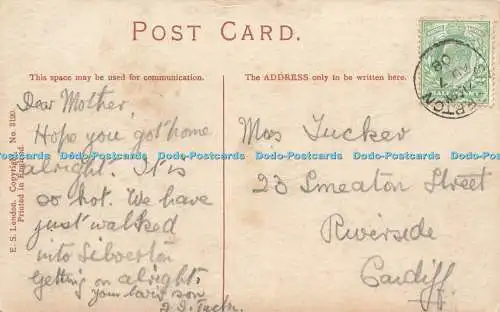 POST CARD.
This space may be used for communication.
The ADDRESS only to be written here.
HALFPENNY
SILVERTON
08
E. S. London. Copyright. No. 3120.
Printed in England.
Dear Mother,
Hope you got home
alright. It is
so hot. We have
just walked
into Silverton
Getting on alright.
your lovin son
Mrs Tucker
23 Smeaton Street
Riverside
Cardiff.
Dodo-Postcards Dodo-Postcards Dodo-Postcards Dodo-Postcards Dodo-Postcards